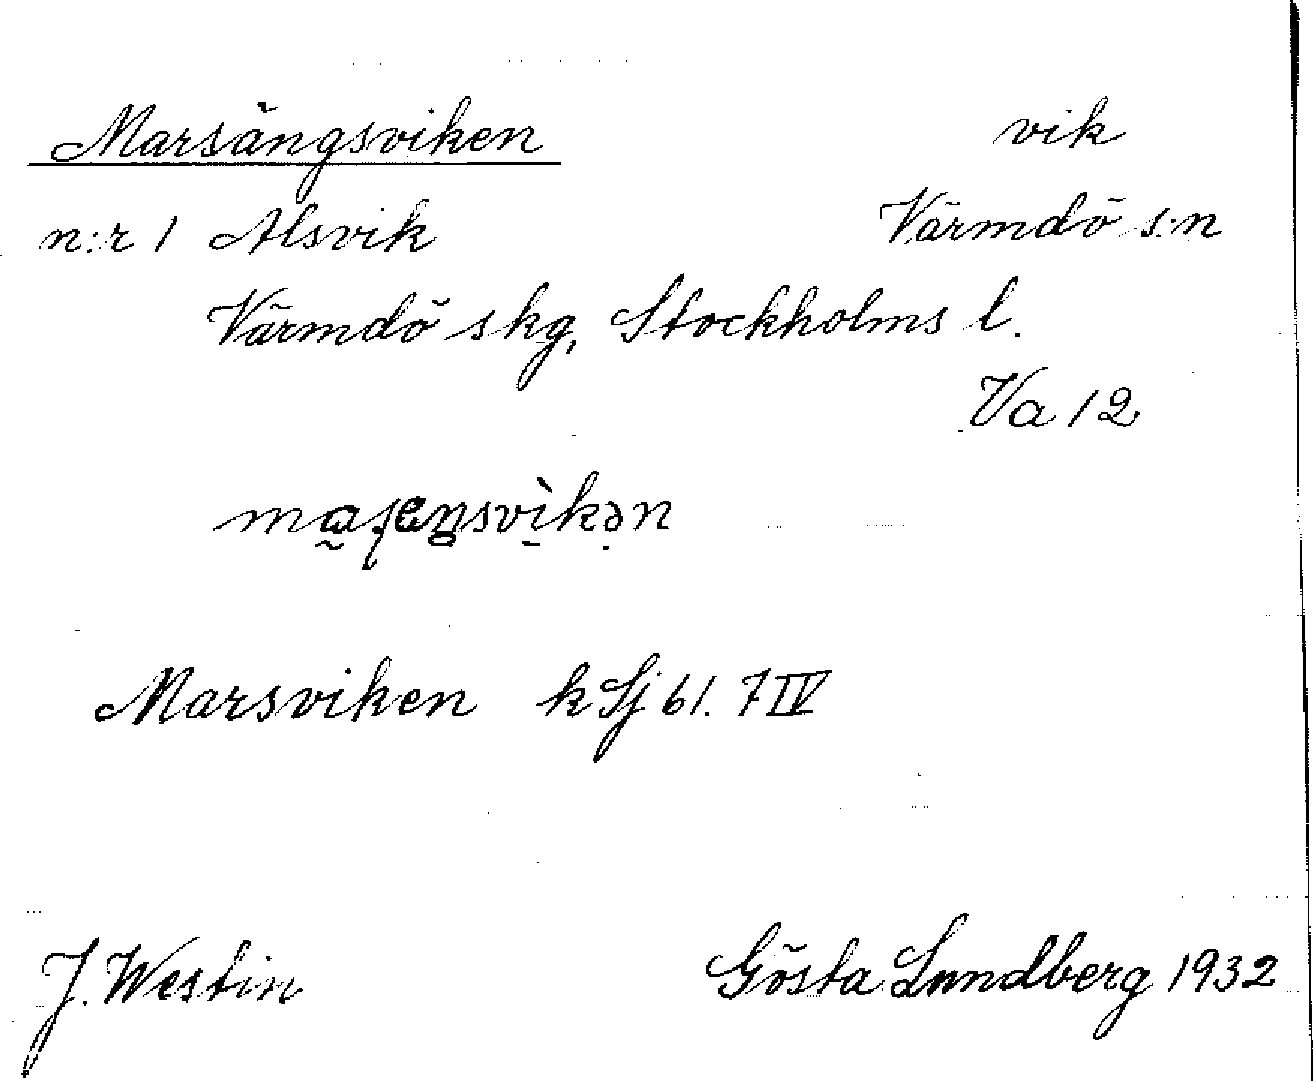 Marsängsviken vik
n:r 1 Alsvik Värmdö s:n
Värmdö skg, Stockholms l.
Va 12
Marsviken k Sj 61. 7 IV
J. Westin Gösta Lundberg 1932